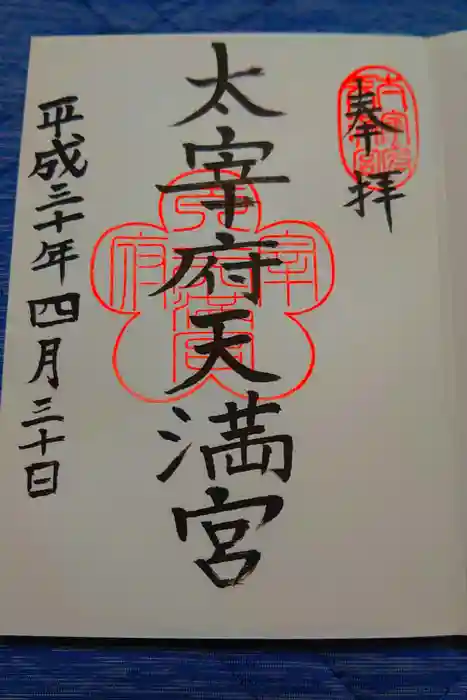 奉拝
太宰府天満宮
平成三十年四月三十日